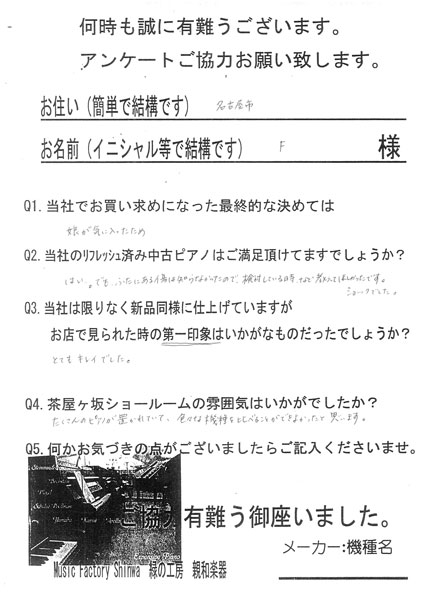 何時も誠に有難うございます。
アンケートご協力お願い致します。
お住い（簡単で結構です） 名古屋市
お名前（イニシャル等で結構です） F 様
Q1. 当社でお買い求めになった最終的な決めては
娘が気に入ったため
Q2. 当社のリフレッシュ済み中古ピアノはご満足頂けてますでしょうか?
はい。でも、ふたにある傷は知らなかったので、検討している時
ショックでした。
Q3. 当社は限りなく新品同様に仕上げていますが
お店で見られた時の第一印象はいかがなものだったでしょうか?
とてもキレイでした。
Q4. 茶屋ヶ坂ショールームの雰囲気はいかがでしたか?
たくさんのピアノが置かれていて、色々な機種をくらべることができよかったと思います。
Q5. 何かお気づきの点がございましたらご記入くださいませ。
ご協力有難う御座いました。
メーカー:機種名
Music Factory Shinwa 緑の工房 親和楽器